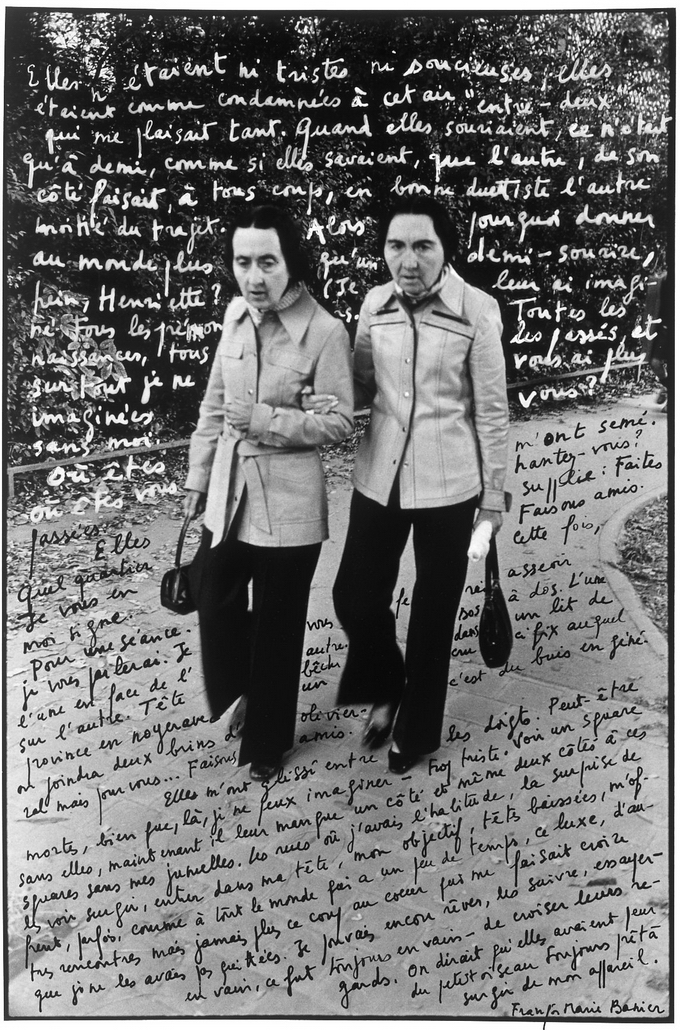 Elles n'étaient ni tristes ni soucieuses, elles
étaient comme condamnées à cet air "entre-deux"
qui me plaisait tant. Quand elles souriaient, ce n'était
qu'à demi, comme si elles savaient, que l'autre, de son
côté faisait, à tous coups, en bonne duettiste l'autre
moitié du trajet. Alors pourquoi donner
au monde plus qu'un demi-sourire,
hein, Henriette? (Je leur ai imagi-
né tous les prénoms. Toutes les
naissances, tous des passés, et
surtout je ne vous ai plus
imaginées vous?
sans moi.
Où êtes m'ont semé.
où êtes vous hantez-vous?
passées supplie: Faites
Elles Faisons amis.
Quel quartier cette fois,
Je vous en
moi signe. asseoir
Pour une séance. vous fe dos à dos. L'une
je vous parlerai. Je autre. dans un lit de
l'une en face de l' bêche fix auquel
sur l'autre. Tête un c'est du buis en géné-
province en noyerave olivier-
on joindra deux brins d' amis.
ral mais pour vous... Faisons
Elles m'ont glissé entre les doigts. Peut-être
mortes, bien que, là, je ne peux imaginer - trop triste. Voir un square
sans elles, maintenant il leur manque un côté et même deux côtés à ces
squares sans mes jumelles. Les rues où j'avais l'habitude, la surprise de
les voir surgir, entrer dans ma tête, mon objectif, têtes baissées, m'of-
frent, parfois, comme à tout le monde qui a un peu de temps, ce luxe, d'au-
tres rencontres mais jamais plus ce coup au coeur qui me faisait croire
que je ne les avais pas quittées. Je pouvais encore rêver, les suivre, essayer-
en vain, ce fut toujours en vain - de croiser leurs re-
gards. On dirait qu'elles avaient peur
du petit oiseau toujours prêt à
surgir de mon appareil.
François Marie Banier